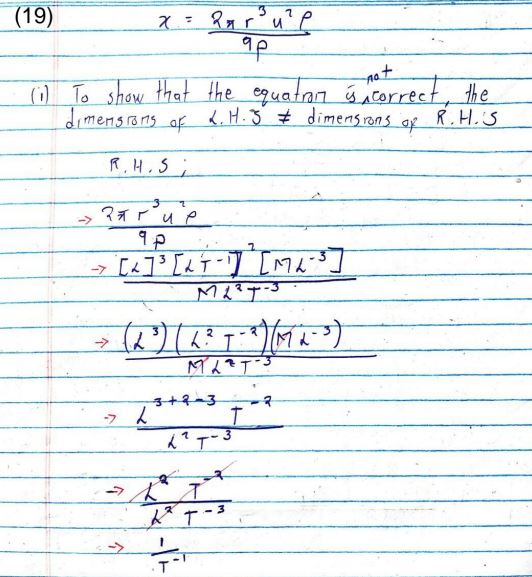 (19) x = 2πr³u²ρ / 9p
(i) To show that the equation is not correct, the
dimensions of L.H.S ≠ dimensions of R.H.S
R.H.S;
→ 2πr³u²ρ / 9p
→ [L]³ [LT-1]² [ML-3] / ML²T-3
→ (L³) (L² T-2) (ML-3) / ML²T-3
→ L3+2-3 T-2 / L²T-3
→ L² T-2 / L² T-3
→ 1 / T-1